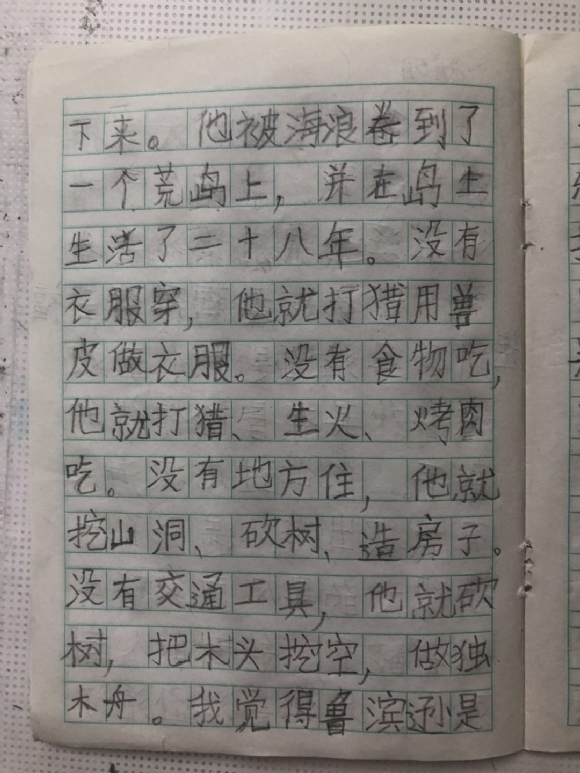 下来。他被海浪卷到了
一个荒岛上，并在岛生
生活了二十八年。没有
衣服穿，他就打猎用兽
皮做衣服。没有食物吃，
他就打猎、生火、烤肉
吃。没有地方住，他就
挖山洞、砍树、造房子。
没有交通工具，他就砍
树，把木头挖空，做独
木舟。我觉得鲁滨逊是